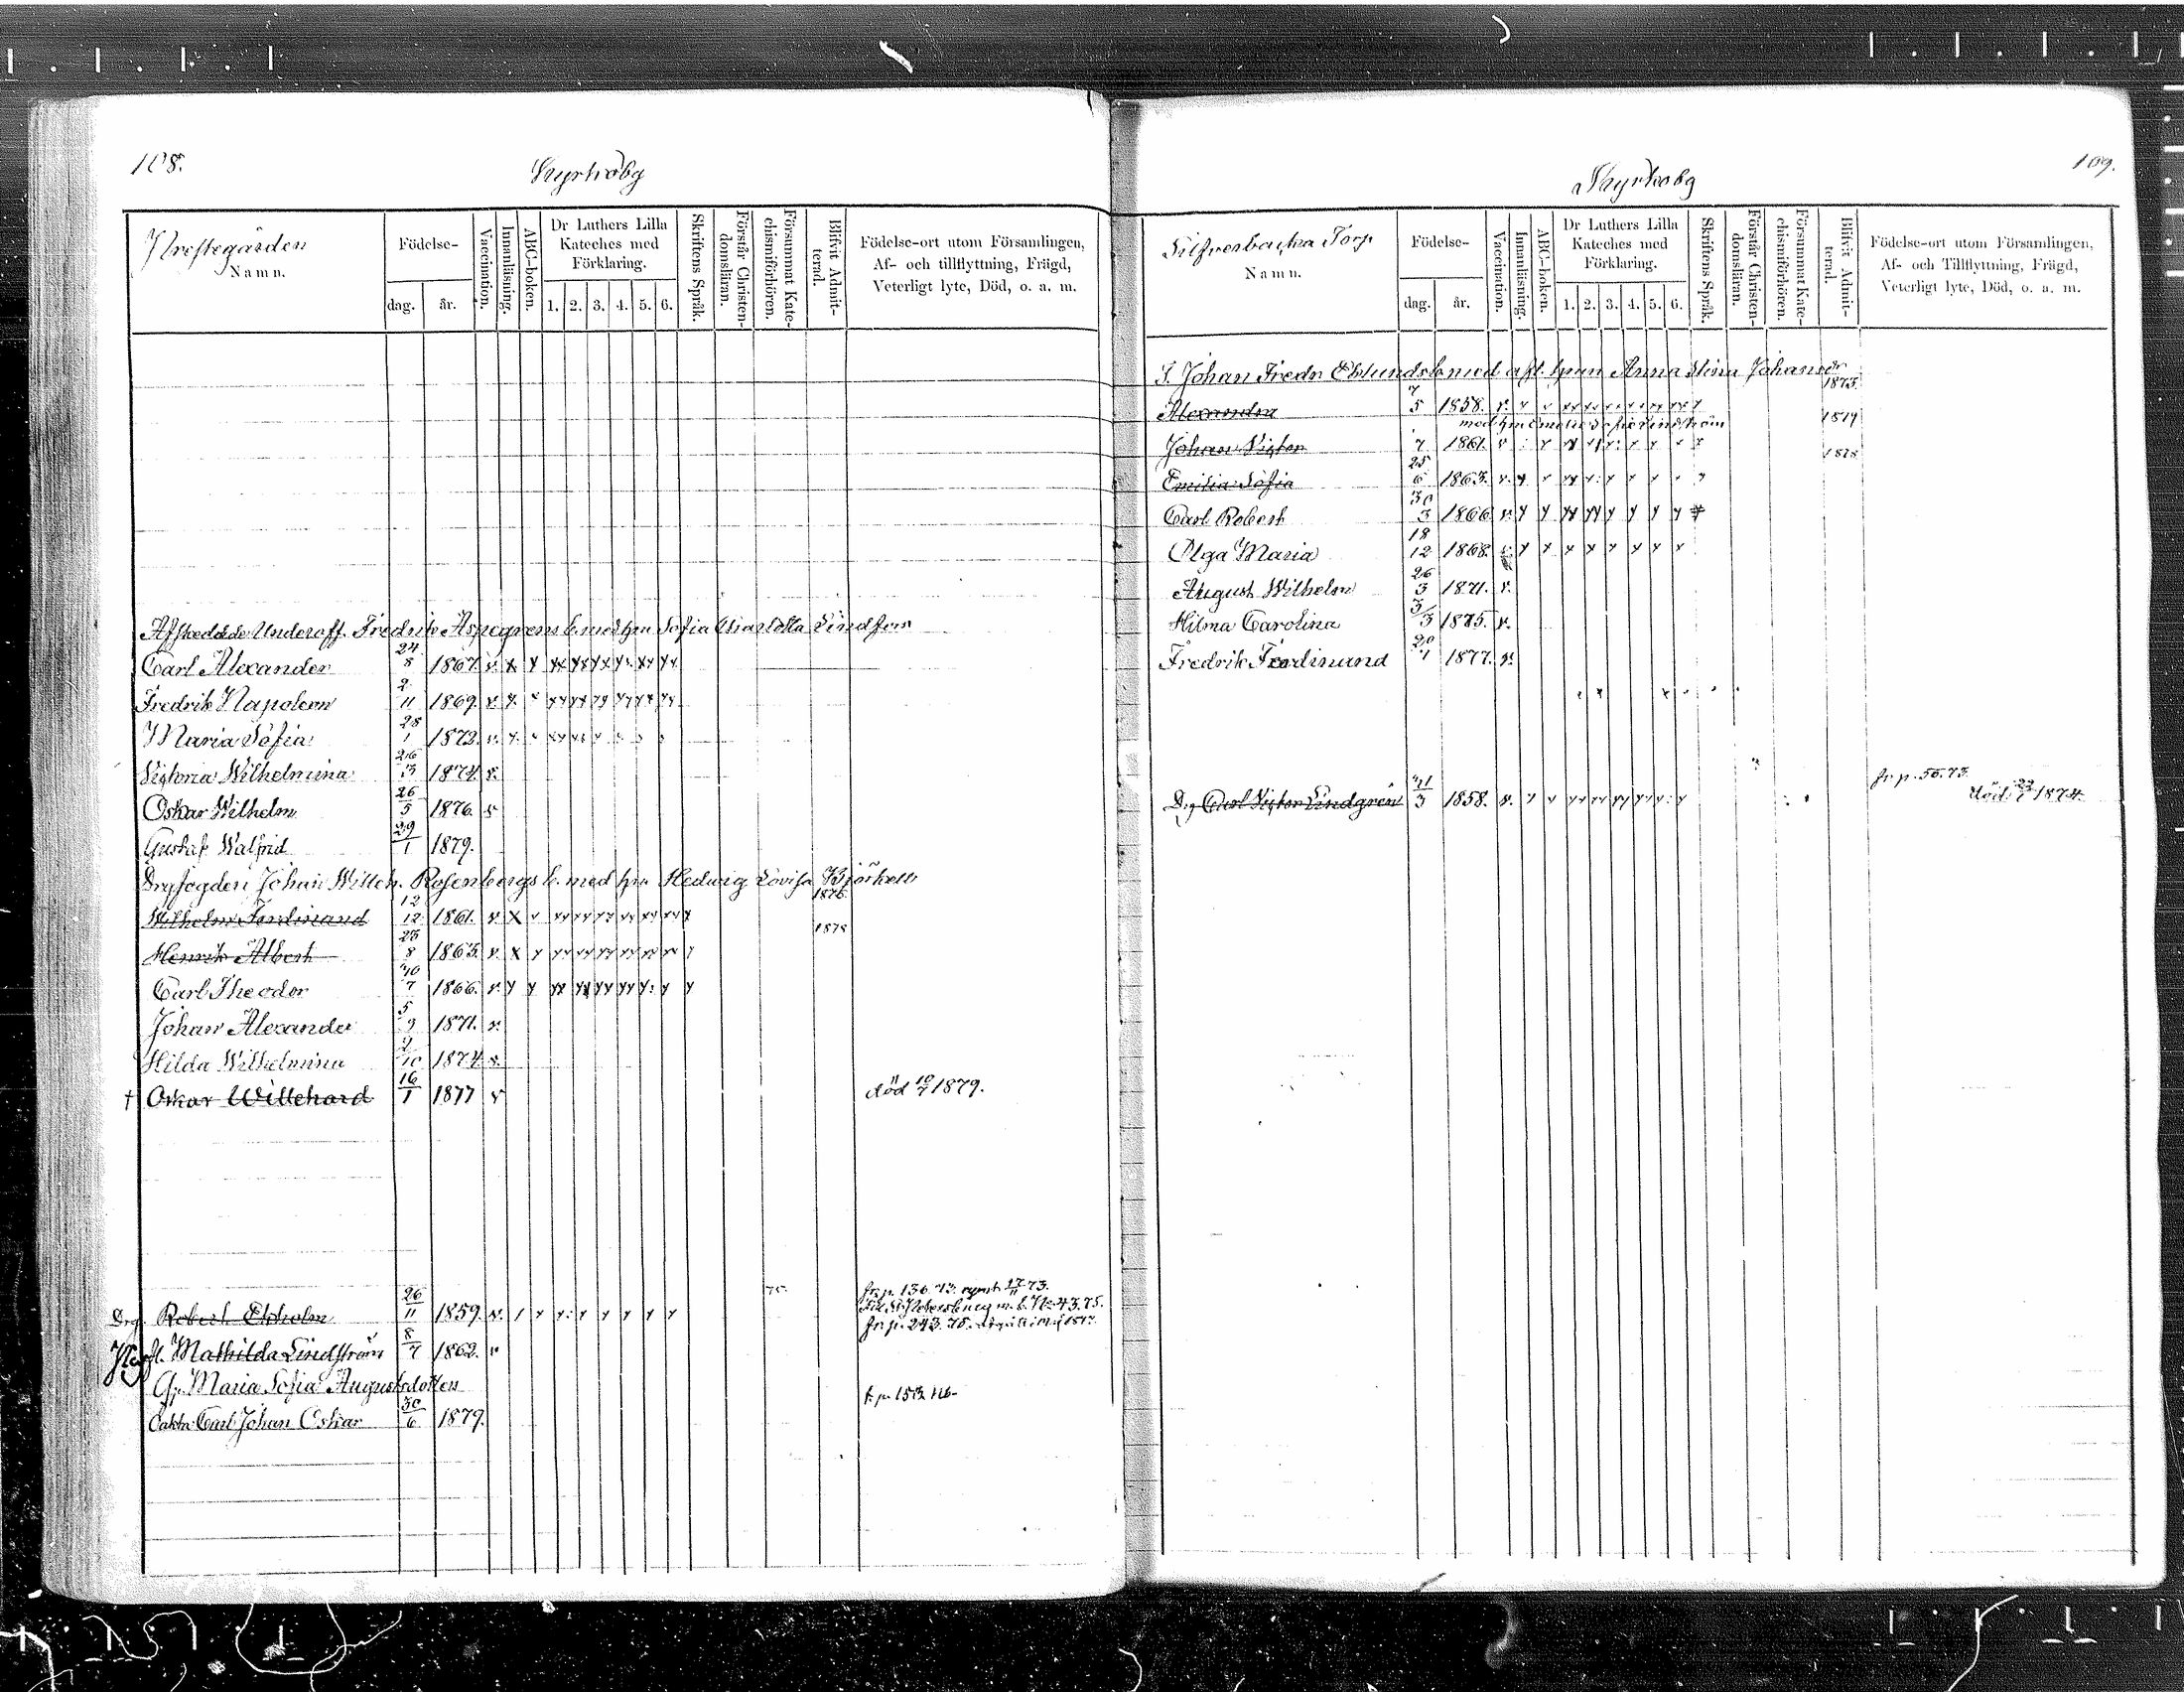 108.
Kyrkoby
Prestegården
Namn.
Födelse-
dag.
år.
Vaccination.
Innanläsning.
ABC-boken.
Dr Luthers Lilla
Kateches med
Förklaring.
1. 2. 3. 4. 5. 6.
Skriftens Språk.
Förstår Christen-
domsläran.
Försummat Kate-
chismiförhören.
Blifvit Admit-
terad.
Födelse-ort utom Församlingen,
Af- och tillflyttning, Frägd,
Veterligt lyte, Död, o. a. m.
Afskedade Underoff. Fredrik Aspegrens b. med hu Sofia Charlotta Lindfors
Carl Alexander 24/8 1867. v.
Fredrik Napoleon 2/11 1869. v.
Maria Sofia 28/1 1872. v.
Victoria Wilhelmina 26/3 1874. v.
Oskar Wilhelm 26/5 1876. v
Gustaf Walfrid 29/1 1879.
Drgfogden Johan Wilh. Rosenbergs b. med hu Hedwig Lovisa Björkell
Wilhelm Ferdinand 12/12 1861. v. 1876
Henrik Albert 23/8 1863. v. 1878
Carl Theodor 10/7 1866. v.
Johan Alexander 5/9 1871. v.
Hilda Wilhelmina 10 1874. v.
† Oskar Willehard 16/1 1877 v död 10/7 1879.
Drg. Robert Ekholm 26/11 1859. v. 75.
fr. p. 136. 73.
Till St Petersburg m. b. 43. 75.
fr. p. 243. 75.
Mathilda Lindström 8/7 1862. v
Maria Sofia Augustsdotters
Carl Johan Oskar 30/6 1879.
109.
Kyrkoby
Silfverbacka Torp
Namn.
Födelse-
dag.
år.
Vaccination.
Innanläsning.
ABC-boken.
Dr Luthers Lilla
Kateches med
Förklaring.
1. 2. 3. 4. 5. 6.
Skriftens Språk.
Förstår Christen-
domsläran.
Försummat Kate-
chismiförhören.
Blifvit Admit-
terad.
Födelse-ort utom Församlingen,
Af- och Tillflyttning, Frägd,
Veterligt lyte, Död, o. a. m.
Johan Fredr Eklunds b. med afl. hu Anna Stina Johansdr
Alexandra 7/5 1858. v. 1873.
med hu Emelie Sofie Lindström
Johan Victor 7 1861. v
Emilia Sofia 25/6 1863. v. 1878
Carl Robert 30/3 1866 v.
Olga Maria 18/12 1868. v.
August Wilhelm 26/3 1871. v.
Hilma Carolina 3/3 1875. v.
Fredrik Ferdinand 20/1 1877. v.
Drg Carl Victor Lindgren 21/3 1858. v. fr. p. 55. 73.
död 1874.